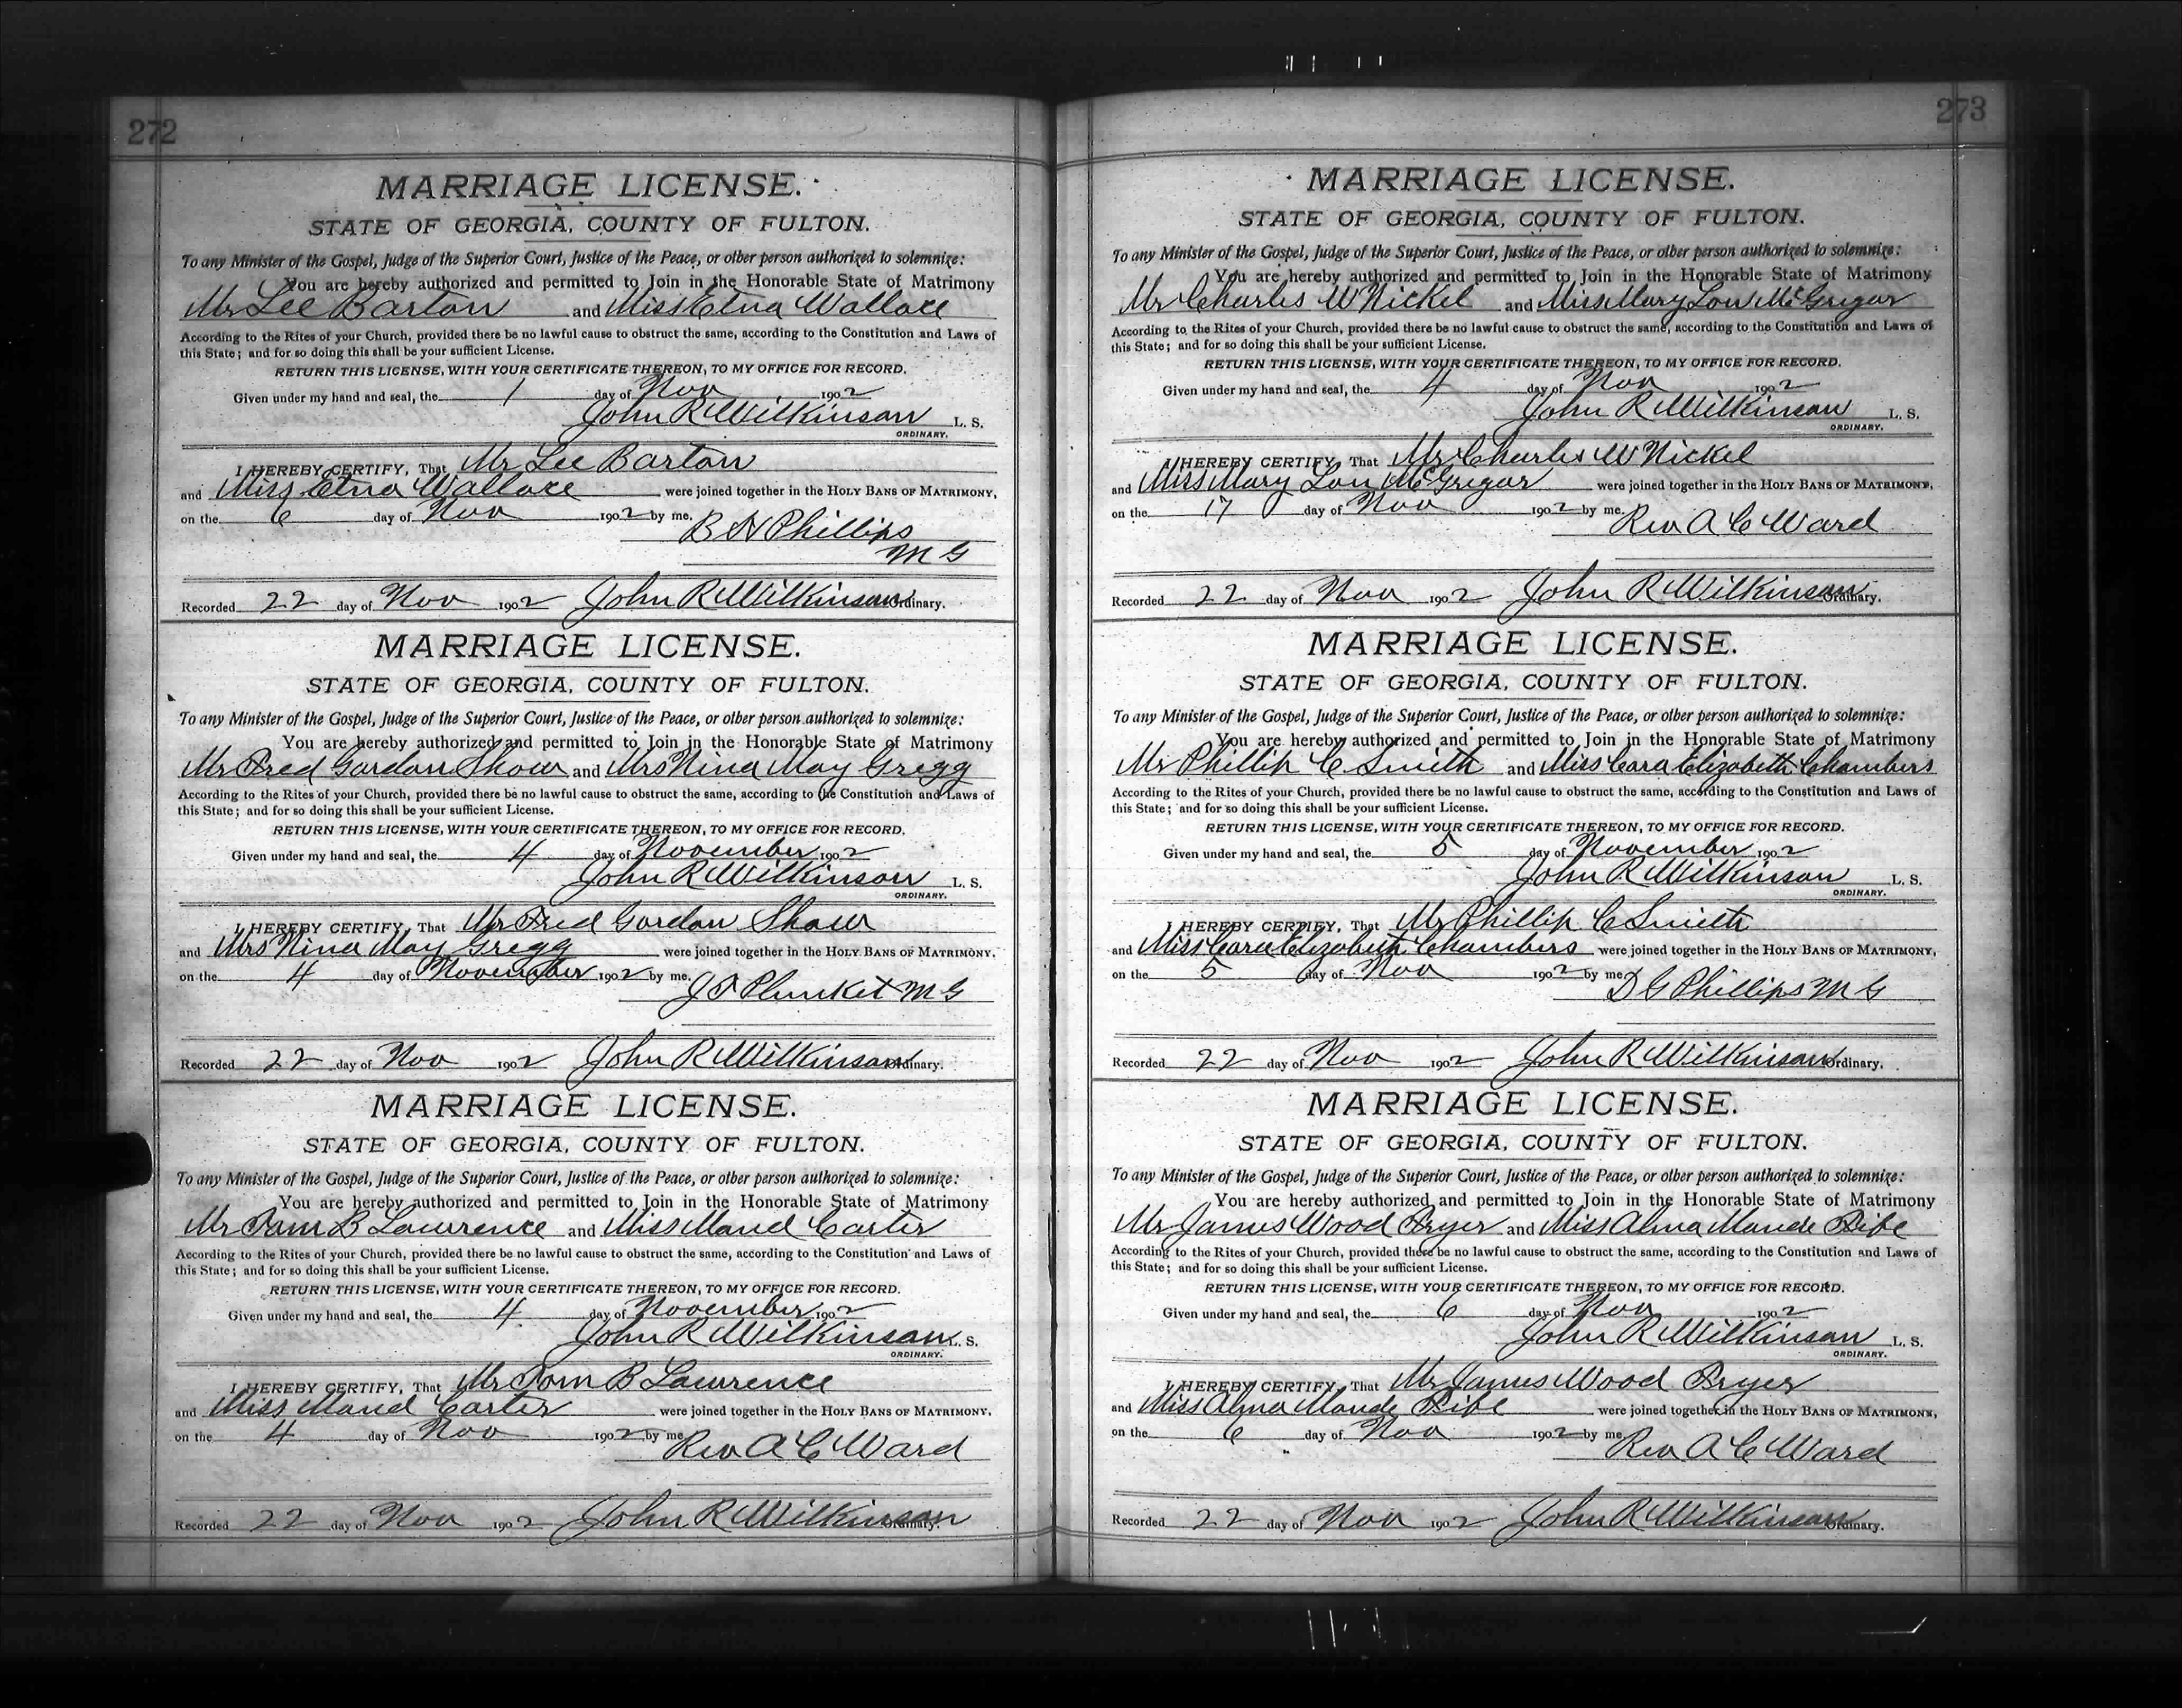 272
MARRIAGE LICENSE.
STATE OF GEORGIA, COUNTY OF FULTON.
To any Minister of the Gospel, Judge of the Superior Court, Justice of the Peace, or other person authorized to solemnize:
You are hereby authorized and permitted to Join in the Honorable State of Matrimony
Mr Lee Barton and Miss Etna Wallace
According to the Rites of your Church, provided there be no lawful cause to obstruct the same, according to the Constitution and Laws of
this State; and for so doing this shall be your sufficient License.
RETURN THIS LICENSE, WITH YOUR CERTIFICATE THEREON, TO MY OFFICE FOR RECORD.
Given under my hand and seal, the 1 day of Nov 1902
John R Wilkinson L. S.
ORDINARY.
I HEREBY CERTIFY, That Mr Lee Barton
and Miss Etna Wallace were joined together in the HOLY BANS OF MATRIMONY,
on the 6 day of Nov 1902 by me,
B H Phillips
M G
Recorded 22 day of Nov 1902 John R Wilkinson Ordinary.
MARRIAGE LICENSE.
STATE OF GEORGIA, COUNTY OF FULTON.
To any Minister of the Gospel, Judge of the Superior Court, Justice of the Peace, or other person authorized to solemnize:
You are hereby authorized and permitted to Join in the Honorable State of Matrimony
Mr Fred Gordon Shaw and Mrs Nina May Gregg
According to the Rites of your Church, provided there be no lawful cause to obstruct the same, according to the Constitution and Laws of
this State; and for so doing this shall be your sufficient License.
RETURN THIS LICENSE, WITH YOUR CERTIFICATE THEREON, TO MY OFFICE FOR RECORD.
Given under my hand and seal, the 4 day of November 1902
John R Wilkinson L. S.
ORDINARY.
I HEREBY CERTIFY, That Mr Fred Gordon Shaw
and Mrs Nina May Gregg were joined together in the HOLY BANS OF MATRIMONY,
on the 4 day of November 1902 by me,
J T Plunket M G
Recorded 22 day of Nov 1902 John R Wilkinson Ordinary.
MARRIAGE LICENSE.
STATE OF GEORGIA, COUNTY OF FULTON.
To any Minister of the Gospel, Judge of the Superior Court, Justice of the Peace, or other person authorized to solemnize:
You are hereby authorized and permitted to Join in the Honorable State of Matrimony
Mr Tom B Lawrence and Miss Maud Carter
According to the Rites of your Church, provided there be no lawful cause to obstruct the same, according to the Constitution and Laws of
this State; and for so doing this shall be your sufficient License.
RETURN THIS LICENSE, WITH YOUR CERTIFICATE THEREON, TO MY OFFICE FOR RECORD.
Given under my hand and seal, the 4 day of November 1902
John R Wilkinson L. S.
ORDINARY.
I HEREBY CERTIFY, That Mr Tom B Lawrence
and Miss Maud Carter were joined together in the HOLY BANS OF MATRIMONY,
on the 4 day of Nov 1902 by me
Rev A C Ward
Recorded 22 day of Nov 1902 John R Wilkinson Ordinary.
273
MARRIAGE LICENSE.
STATE OF GEORGIA, COUNTY OF FULTON.
To any Minister of the Gospel, Judge of the Superior Court, Justice of the Peace, or other person authorized to solemnize:
You are hereby authorized and permitted to Join in the Honorable State of Matrimony
Mr Charles W Nickel and Miss Mary Lou McGregor
According to the Rites of your Church, provided there be no lawful cause to obstruct the same, according to the Constitution and Laws of
this State; and for so doing this shall be your sufficient License.
RETURN THIS LICENSE, WITH YOUR CERTIFICATE THEREON, TO MY OFFICE FOR RECORD.
Given under my hand and seal, the 4 day of Nov 1902
John R Wilkinson L. S.
ORDINARY.
I HEREBY CERTIFY, That Mr Charles W Nickel
and Miss Mary Lou McGregor were joined together in the HOLY BANS OF MATRIMONY,
on the 17 day of Nov 1902 by me
Rev A C Ward
Recorded 22 day of Nov 1902 John R Wilkinson Ordinary.
MARRIAGE LICENSE.
STATE OF GEORGIA, COUNTY OF FULTON.
To any Minister of the Gospel, Judge of the Superior Court, Justice of the Peace, or other person authorized to solemnize:
You are hereby authorized and permitted to Join in the Honorable State of Matrimony
Mr Phillip C Smith and Miss Cara Elizabeth Chambers
According to the Rites of your Church, provided there be no lawful cause to obstruct the same, according to the Constitution and Laws of
this State; and for so doing this shall be your sufficient License.
RETURN THIS LICENSE, WITH YOUR CERTIFICATE THEREON, TO MY OFFICE FOR RECORD.
Given under my hand and seal, the 5 day of November 1902
John R Wilkinson L. S.
ORDINARY.
I HEREBY CERTIFY, That Mr Phillip C Smith
and Miss Cara Elizabeth Chambers were joined together in the HOLY BANS OF MATRIMONY,
on the 5 day of Nov 1902 by me
D G Phillips M G
Recorded 22 day of Nov 1902 John R Wilkinson Ordinary.
MARRIAGE LICENSE.
STATE OF GEORGIA, COUNTY OF FULTON.
To any Minister of the Gospel, Judge of the Superior Court, Justice of the Peace, or other person authorized to solemnize:
You are hereby authorized and permitted to Join in the Honorable State of Matrimony
Mr James Wood and Miss Alma Maude
According to the Rites of your Church, provided there be no lawful cause to obstruct the same, according to the Constitution and Laws of
this State; and for so doing this shall be your sufficient License.
RETURN THIS LICENSE, WITH YOUR CERTIFICATE THEREON, TO MY OFFICE FOR RECORD.
Given under my hand and seal, the 6 day of Nov 1902
John R Wilkinson L. S.
ORDINARY.
I HEREBY CERTIFY, That Mr James Wood
and Miss Alma Maude were joined together in the HOLY BANS OF MATRIMONY,
on the 6 day of Nov 1902 by me
Rev A C Ward
Recorded 22 day of Nov 1902 John R Wilkinson Ordinary.